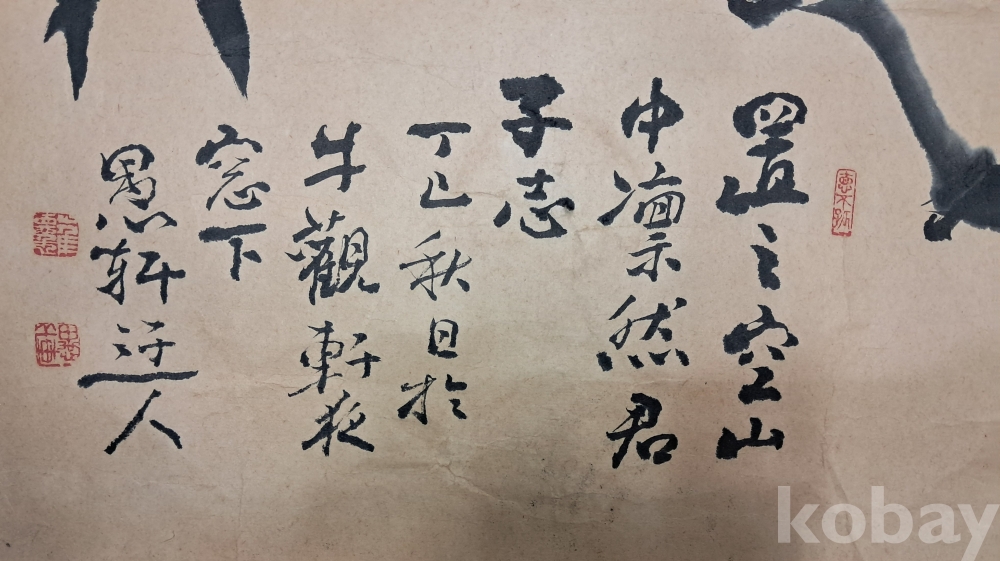 置之空山
中凛然君
子志
丁巳秋日於
牛觀軒夜
窓下
愚軒迂人
kobay